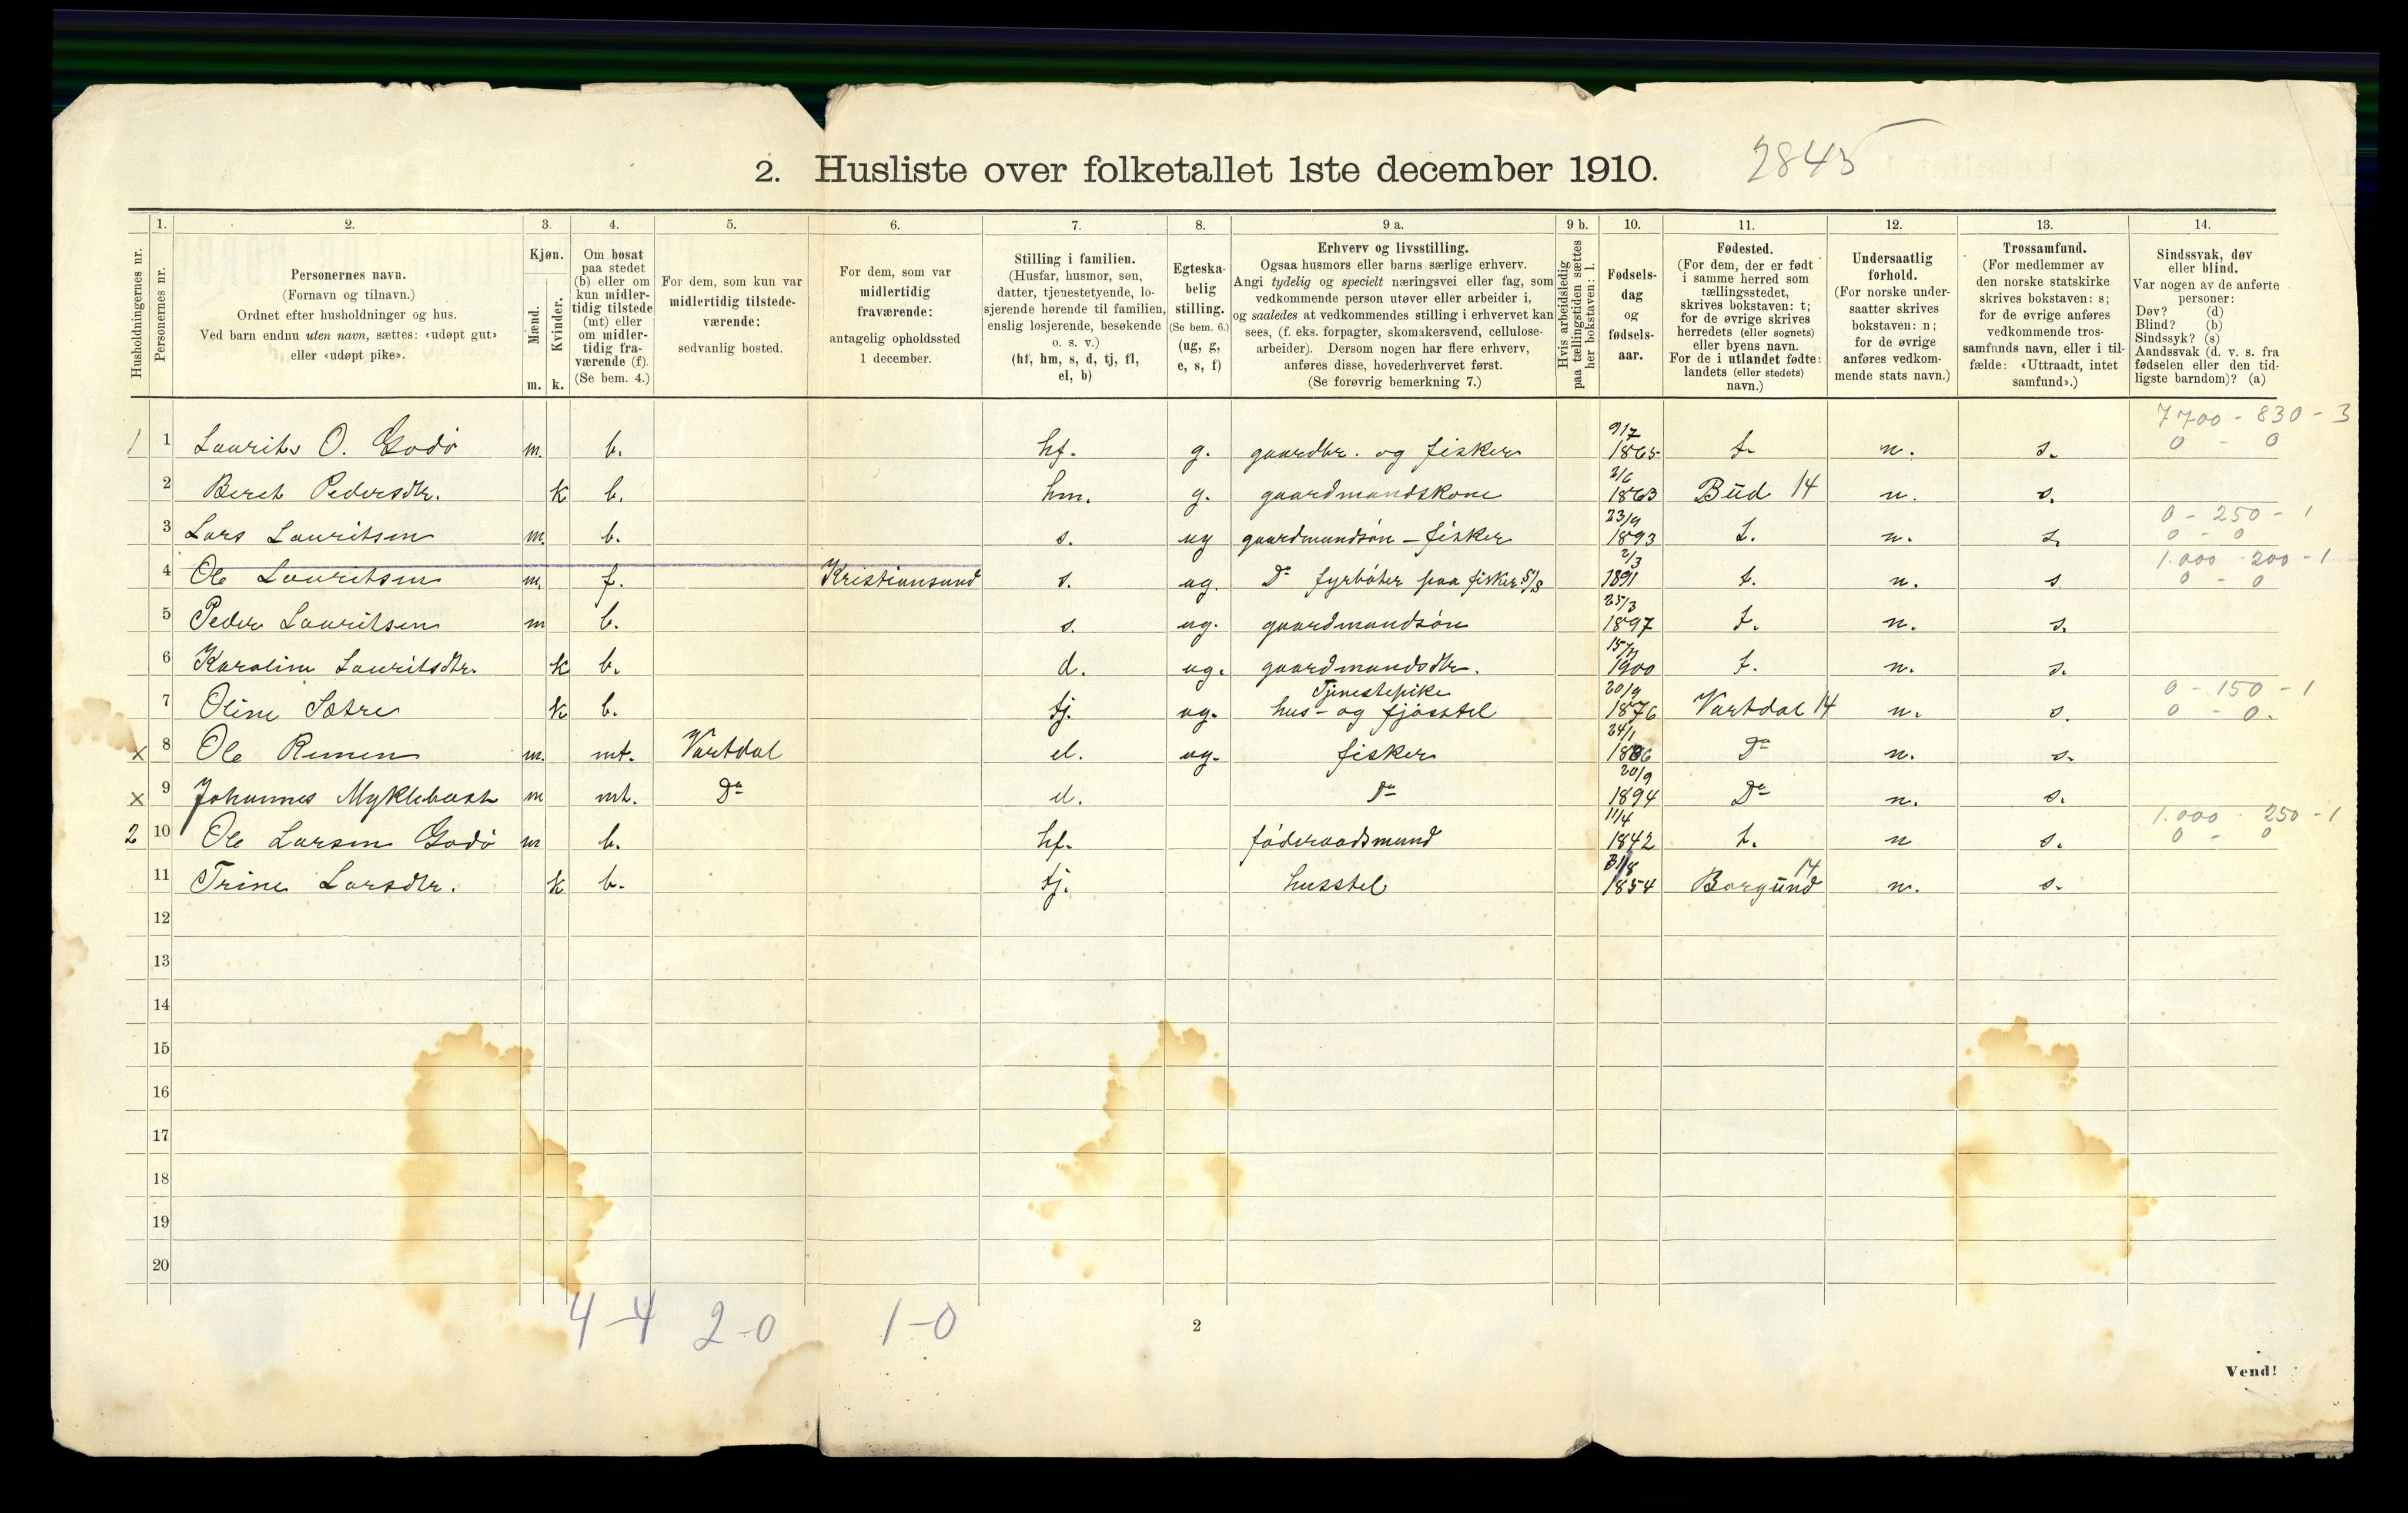 2. Husliste over folketallet 1ste december 1910. 2845
1. 2. 3. 4. 5. 6. 7. 8. 9 a. 9 b. 10. 11. 12. 13. 14.
Husholdningernes nr.
Personernes nr.
Personernes navn.
(Fornavn og tilnavn.)
Ordnet efter husholdninger og hus.
Ved barn endnu uten navn, sættes: «udøpt gut»
eller «udøpt pike».
Kjøn.
Mænd.
Kvinder.
m. k.
Om bosat
paa stedet
(b) eller om
kun midler-
tidig tilstede
(mt) eller
om midler-
tidig fra-
værende (f).
(Se bem. 4.)
For dem, som kun var
midlertidig tilstede-
værende:
sedvanlig bosted.
For dem, som var
midlertidig
fraværende:
antagelig opholdssted
1 december.
Stilling i familien.
(Husfar, husmor, søn,
datter, tjenestetyende, lo-
sjerende hørende til familien,
enslig losjerende, besøkende
o. s. v.)
(hf, hm, s, d, tj, fl,
el, b)
Egteska-
belig
stilling.
(Se bem. 6.)
(ug, g,
e, s, f)
Erhverv og livsstilling.
Ogsaa husmors eller barns særlige erhverv.
Angi tydelig og specielt næringsvei eller fag, som
vedkommende person utøver eller arbeider i,
og saaledes at vedkommendes stilling i erhvervet kan
sees, (f. eks. forpagter, skomakersvend, cellulose-
arbeider). Dersom nogen har flere erhverv,
anføres disse, hovederhvervet først.
(Se forøvrig bemerkning 7.)
Hvis arbeidsledig
paa tællingstiden sættes
her bokstaven: l.
Fødsels-
dag
og
fødsels-
aar.
Fødested.
(For dem, der er født
i samme herred som
tællingsstedet,
skrives bokstaven: t;
for de øvrige skrives
herredets (eller sognets)
eller byens navn.
For de i utlandet fødte:
landets (eller stedets)
navn.)
Undersaatlig
forhold.
(For norske under-
saatter skrives
bokstaven: n;
for de øvrige
anføres vedkom-
mende stats navn.)
Trossamfund.
(For medlemmer av
den norske statskirke
skrives bokstaven: s;
for de øvrige anføres
vedkommende tros-
samfunds navn, eller i til-
fælde: «Uttraadt, intet
samfund».)
Sindssvak, døv
eller blind.
Var nogen av de anførte
personer:
Døv? (d)
Blind? (b)
Sindssyk? (s)
Aandssvak (d. v. s. fra
fødselen eller den tid-
ligste barndom)? (a)
7700 - 830 - 3
1 1 Laurits O. Godö m. b. hf. g. gaardbr. og fisker 9/7 1865 t. n. s. 0 - 0
2 Beret Pedersdtr. k b. hm. g. gaardmandskone 2/6 1863 Bud 14 n. s.
0 - 250 - 1
3 Lars Lauritsen m. b. s. ug gaardmandsön - fisker 23/9 1893 t. n. s. 0 - 0
1.000 - 200 - 1
4 Ole Lauritsen m. f. Kristiansund s. ug. Do fyrböter paa fisker S/S 2/3 1891 t. n. s 0 - 0
5 Peder Lauritsen m b. s. ug. gaardmandsön 25/3 1897 t. n. s.
6 Karoline Lauritsdtr. k b. d. ug. gaardmandsdtr. 1900 t. n. s.
Tjenestepike 0 - 150 - 1
7 Oline Sætre k b. tj. ug. hus- og fjösstel 20/9 1876 Vartdal 14 n. s. 0 - 0.
x 8 Ole Rimen m. mt. Vartdal el. ug. fisker 24/1 1886 Do n. s.
x 9 Johannes Myklebust m mt. Do el. Do 20/9 1894 Do n. s.
1.000 - 250 - 1
2 10 Ole Larsen Godö m b. hf. föderaadsmand 11/4 1842 t. n s. 0 - 0
11 Trine Larsdtr. k b. tj. husstel 31/8 1854 Borgund 14 n. s.
12
13
14
15
16
17
18
19
20
4-4 2-0 1-0
2
Vend!